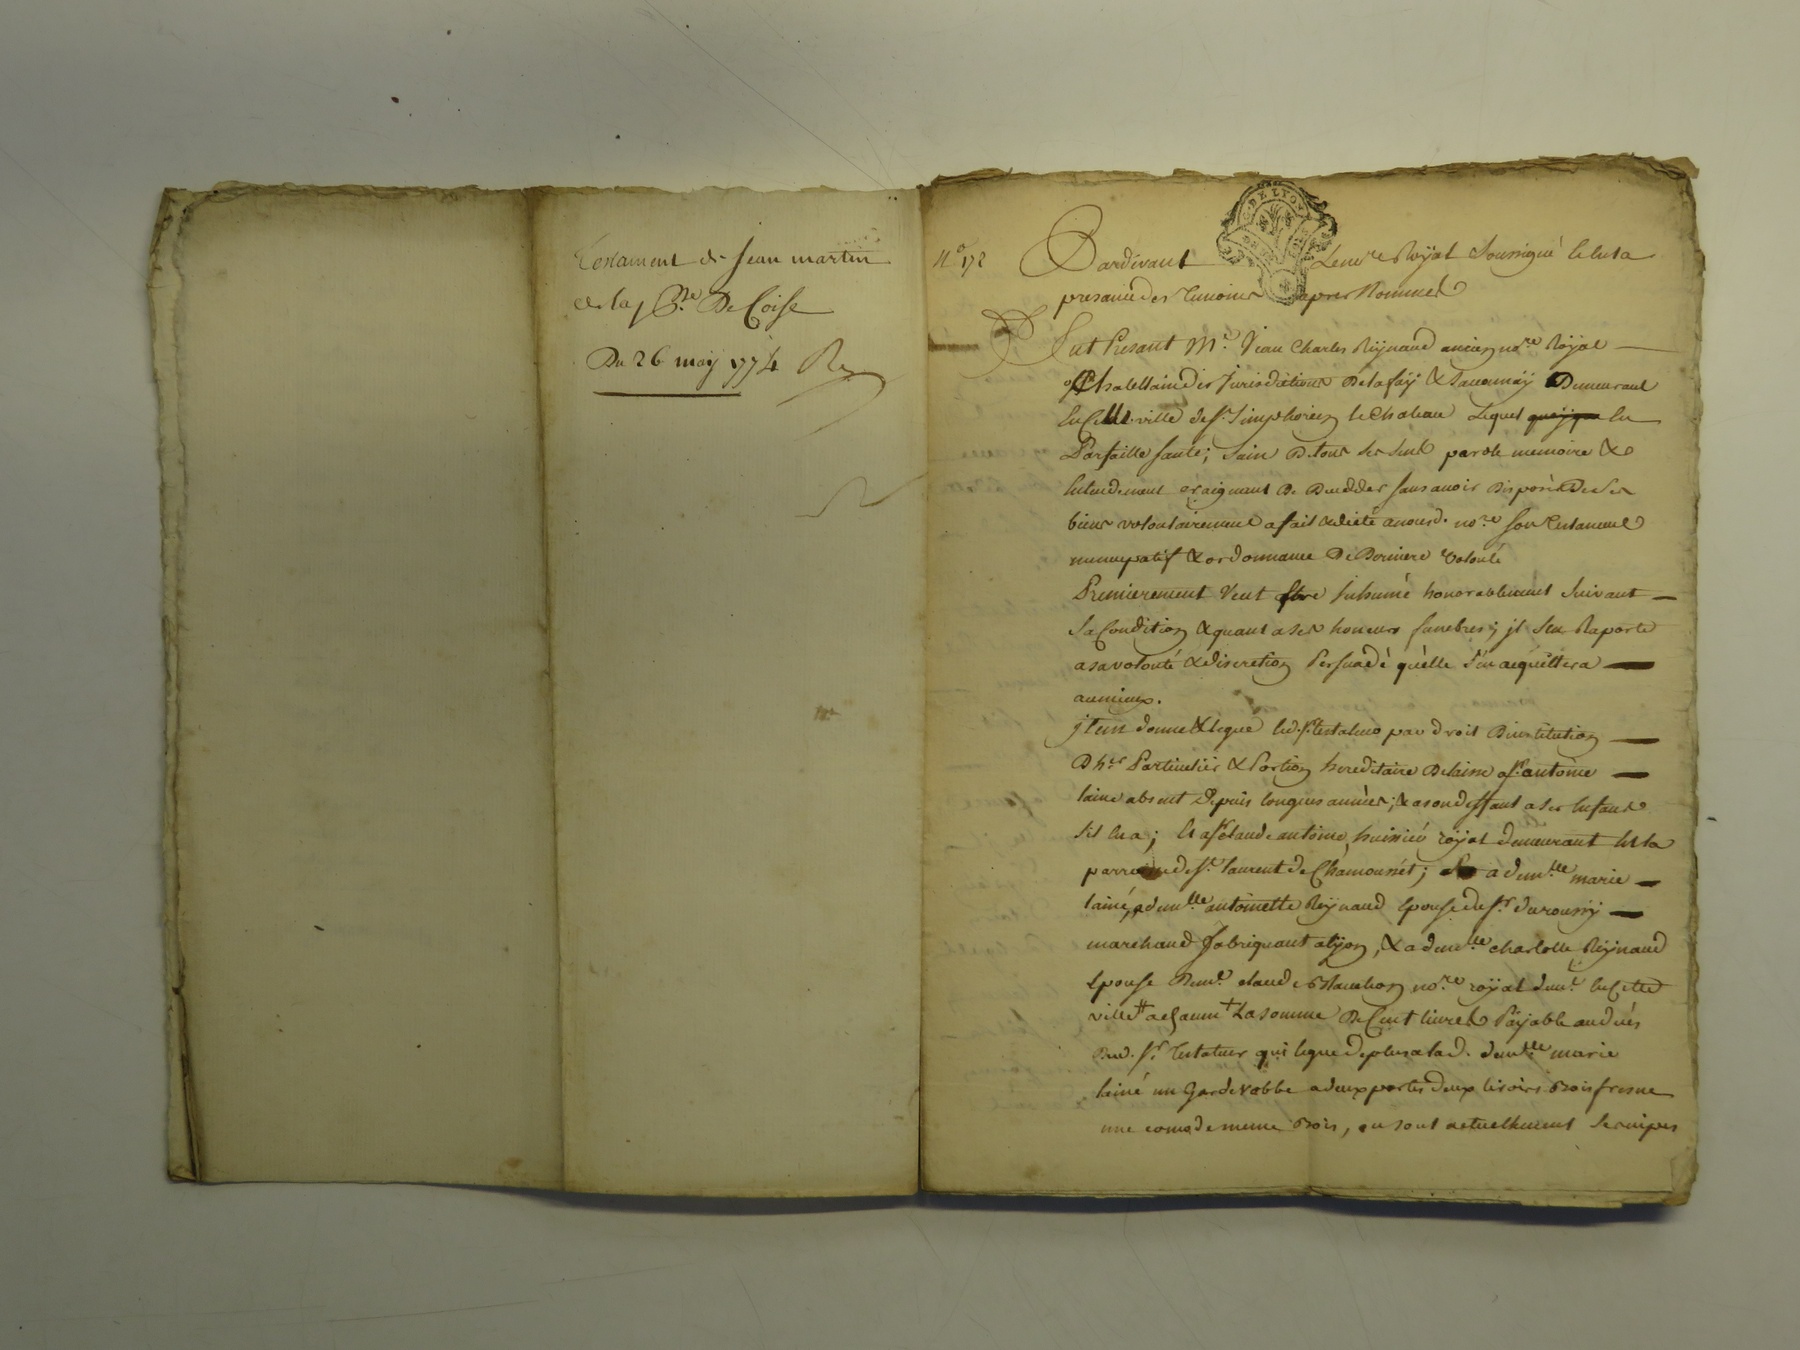 Testament de Jean martin
de la p.sse De Coise
Du 26 may 1774
N.o 172
Pardevant Le no.re Royal Soussigné & en la
presance des Temoins apres Nommés
G. DE LYON
Fut Present M.e Jean Charles Reÿnaud ancien no.re Roÿal
Chatellain des Jurisdictions De lafaÿ & Demeurant
En Cette ville de s.t Simphorien le Chateau Lequel En
Parfaitte Santé; Sain De tous ses sens parole memoire &
Entendement craignant De Deceder sans avoir Disposé De Ses
biens volontairement a fait & dicté anousd. no.re son Testament
nuncupatif & ordonnance De Derniere volonté
Premierement Veut Etre Inhumé honorablement Suivant
Sa Condition & quant a Ses honeurs funebres; jl S'en Raporte
a sa volonté & discretion Persuadé qu'elle S'en acquittera
aumieux.
jtem donne & legue led. s.r testateur par droit D'institution
D'h.er Particulier & Portion hereditaire antoine
lainé absent depuis longues années; & a son deffaut a Ses Enfants
s'il En a; Claude antoine, huissier roÿal demeurant En la
parroisse de s.t laurent de Chamousset; a dem.lle marie
lainé, a dem.lle antoinette Reÿnaud Epouse de s.r durousseÿ
marchand fabriquant a lÿon, & a dem.lle charlotte Reÿnaud
Epouse De m.e claude no.re roÿal dem.t En Cette
ville La somme De Cent livres Paÿable au deces
Dud. s.r Testateur qui legue de plus a lad. dem.lle marie
lainé un Garderobbe a deux portes deux tiroirs Bois fresne
une comode meme Bois, ou sont actuellement Ses nipes